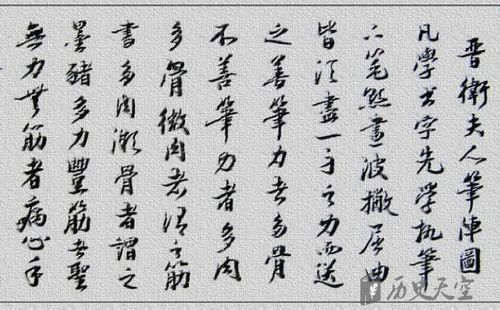 晋衛夫人筆陣圖
凡學书字先学執筆
下笔點畫波撇屈曲
皆须盡一身之力而送
之善筆力者多骨
不善筆力者多肉
多骨微肉者謂之筋
書多肉微骨者謂之
墨豬多力豐筋者聖
無力無筋者病心手
历史天空